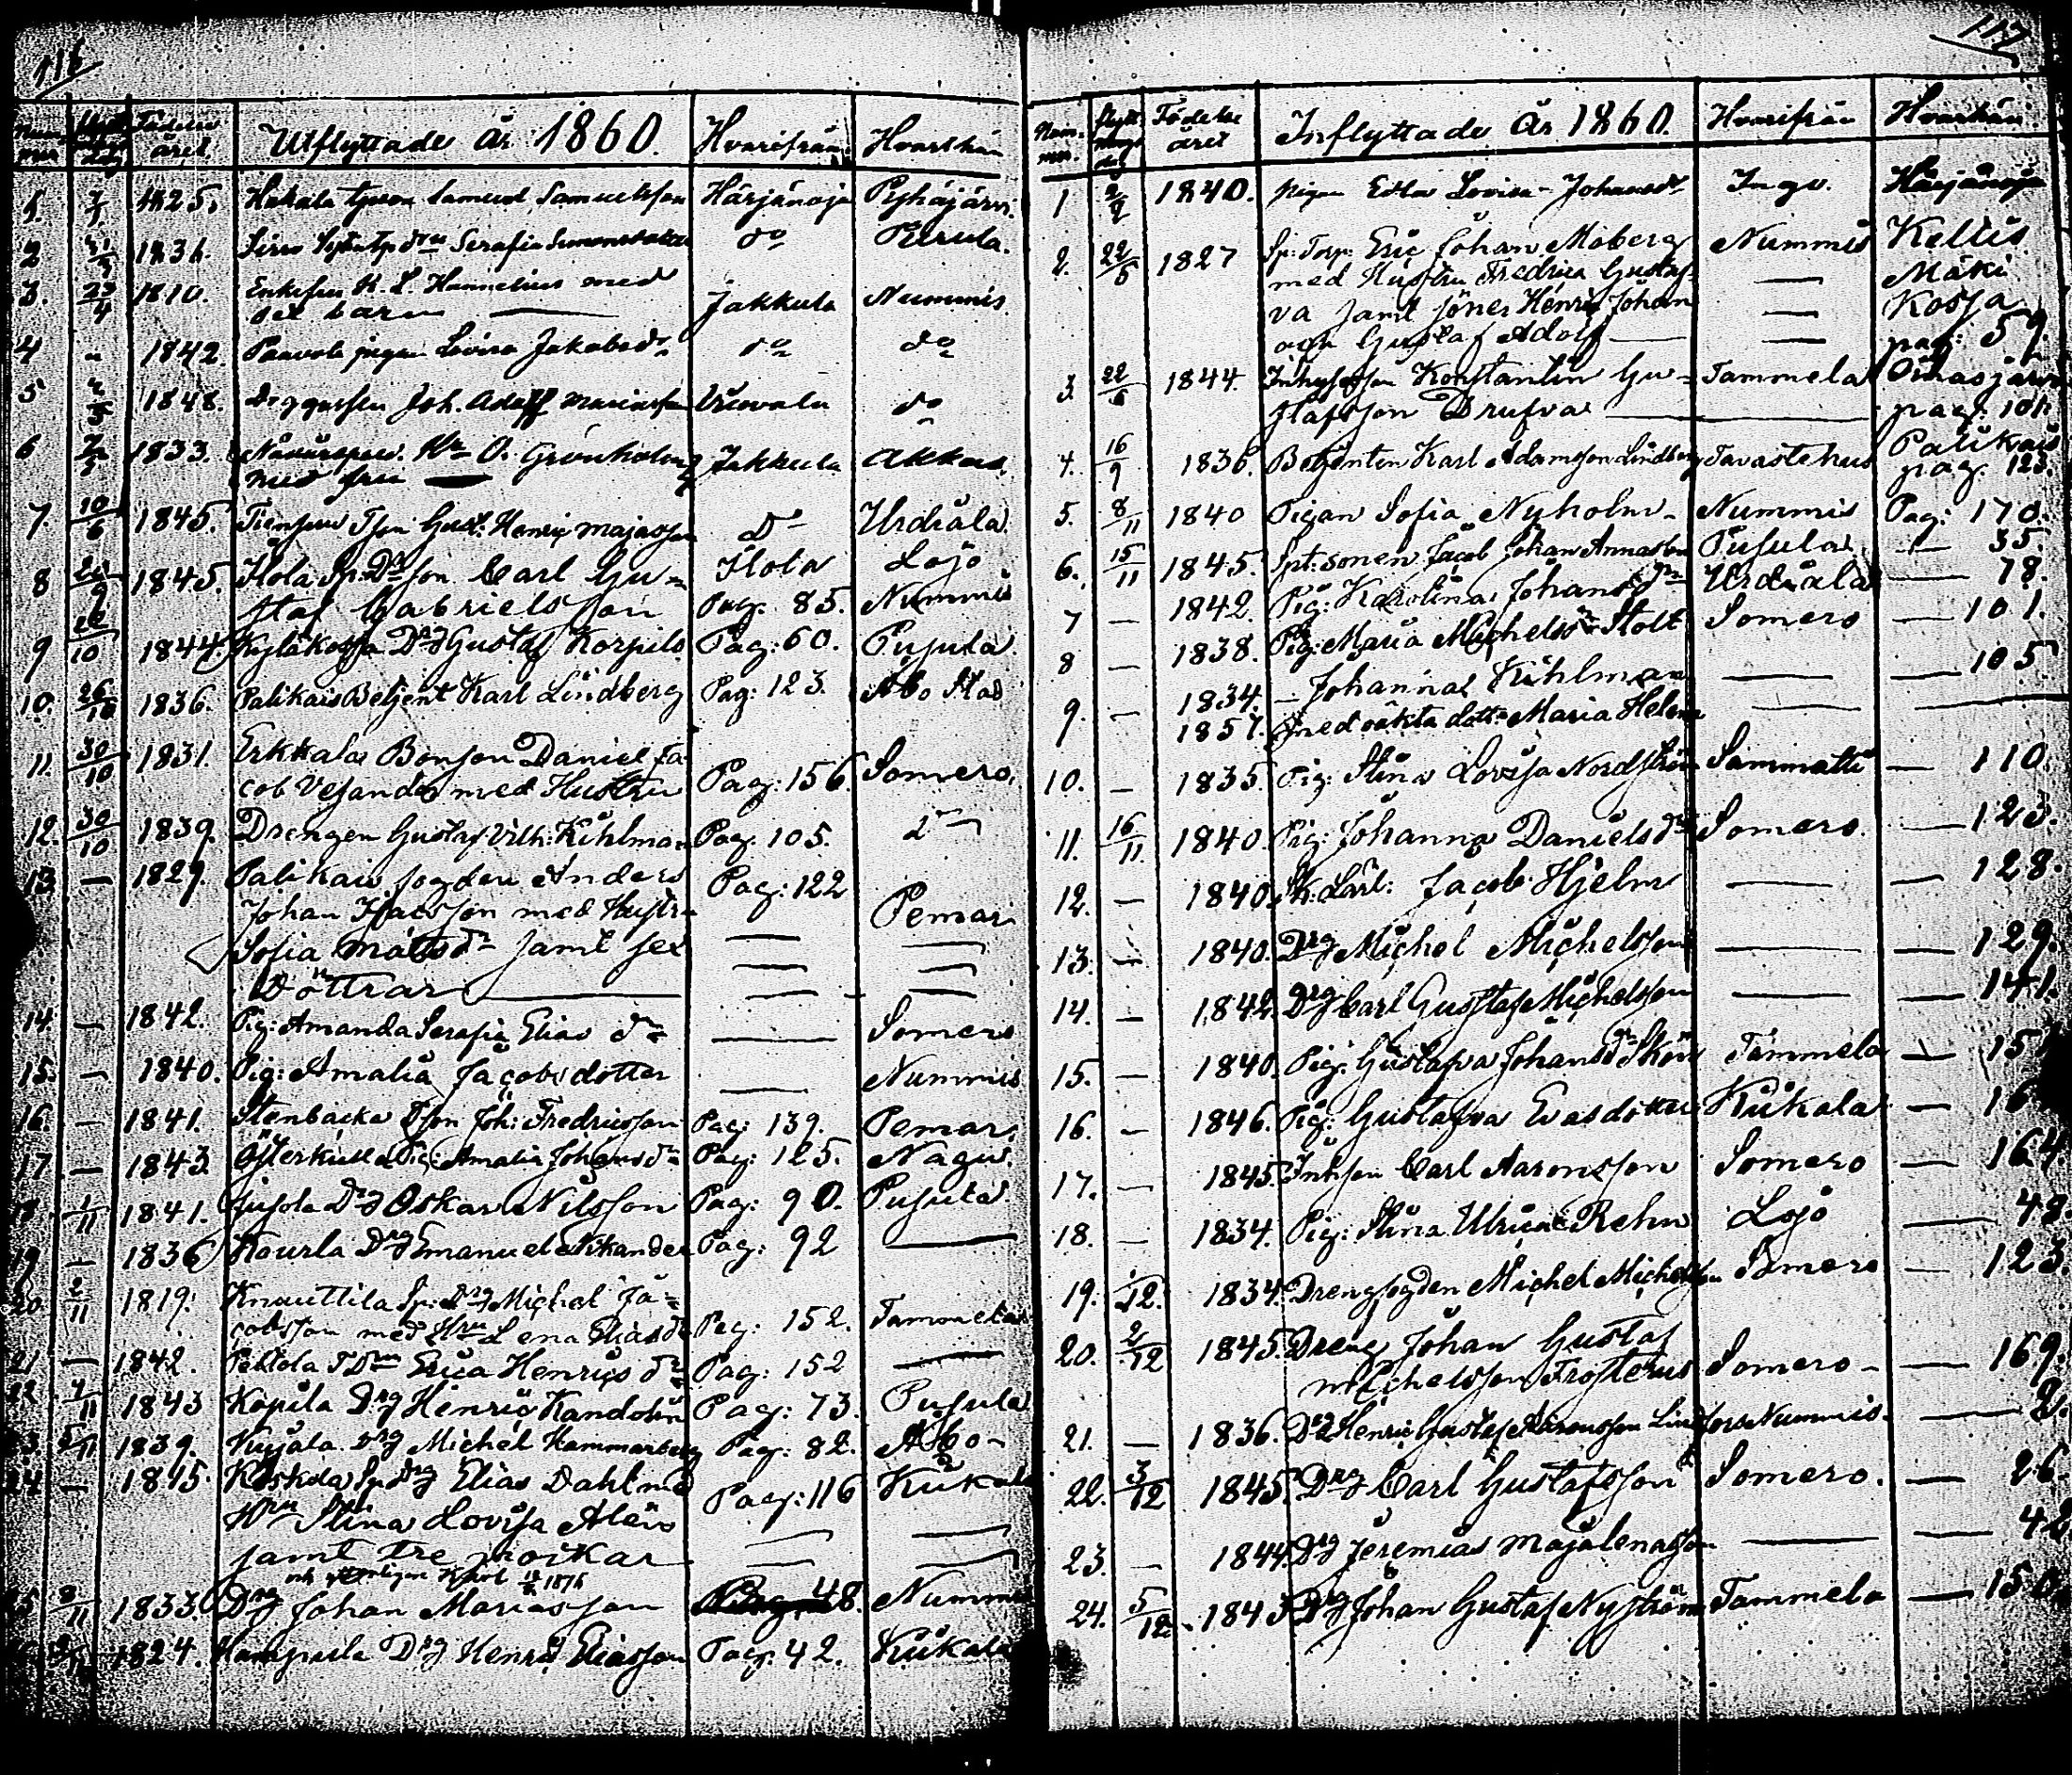 116
Utflyttade År 1860. Hvarifrån Hvarthän
1. 1825. Samuel Samuelsson Härjänoja Pyhäjärvi.
2 1836. Serafia do Pusula.
3. 23/4 1810. Enkefru H. L. Hannelius med Jakkula Nummis
sex barn
4 " 1842. Paavola pigan Lovisa Jakobsdr do do
5 1848. Joh. Adolf Mariasson do
6 1833. O. Grönholm Jakkula Akkas.
med fru
7. 10/6 1845. Gust. Henric Majasson do Urdiala.
8 1845. Ilola Sp: Dr son Carl Gu= Ilola Lojo
staf Gabrielsson Pag. 85. Nummis
9 1844. Kyläkossa Drg Gustaf Korpilo Pag: 60. Pusula.
10. 26/10 1836. Palikais Betjent Karl Lindberg Pag: 123. Åbo Stad
11. 30/10 1831. Erkkala Bonson Daniel Ja=
cob Vesander med Hustru Pag: 156 Somero.
12. 30/10 1839. Drengen Gustaf Vilh: Kihlman Pag. 105. do
13. — 1829. Palikais fogden Anders Pag: 122
Johan Isacsson med Hustru Pemar
Sofia Mattsdr samt sex — —
Döttrar — — —
14. — 1842. Pig: Amanda Serafia Elias dr — Somero
15. — 1840. Pig: Amalia Jacobsdotter — Nummis
16. — 1841. Stenbacka Tson Joh: Fredricsson Pag: 139. Pemar.
17 — 1843. Österkulla Pig: Amalia Johansdr Pag: 125. Nagu.
18 1/11 1841. Jusola Drg Oskar Nilsson Pag: 90. Pusula.
19 — 1836 Kourla Drg Emanuel Nikander Pag: 92 —
20. 2/11 1819. Knauttila Sp: Drg Michel Ja=
cobsson med Hru Lena Eliasdr Pag: 152. Tammela
21 — 1842. Pettola Erica Henrics dr Pag: 152 —
22 4/11 1843 Kopila Drg Henric Kandolin Pag: 73. Pusula
23. 5/11 1839. Kujala Drg Michel Hammarberg Pag: 82. Åbo
24 — 1815. Koskola Sp Drg Elias Dahl med Pag: 116 Kiikala
Hru Stina Lovisa Alén —
samt tre poikar — —
och Karl 1876
25 8/11 1833. Drg Johan Mariasson Pag. 48. Nummis
1824. Drg Henric Eliasson Pag. 42. Kiikala
117
Num-mer. flyttnings dag Födelse året Inflyttade År 1860. Hvarifrån Hvarthän
1 1840. Pigan Edla Lovisa Johansdr Ingo. Härjänoja
2. 22/5 1827 Sp: Torp: Eric Johan Moberg Nummis Kellis
med Hustru Fredrica Gustaf= — Mäki
va samt söner Henric Johan — Kossa
och Gustaf Adolf — — pag: 59.
3. 22/5 1844. Konstantin Gu= Tammela Oinasjärvi
stafsson Drufva — pag: 101
4. 16/9 1836. Betjenten Karl Adamsson Lindberg Tavastehus Palikais
pag. 123.
5. 8/11 1840 Pigan Sofia Nyholm Nummis Pag: 170.
6. 15/11 1845. Spt: sonen Jacob Johan Annasson Pusula — 35.
7 — 1842. Pig: Karolina Johansdr Urdiala — 78.
8 — 1838. Pig: Maria Michelsdr Stolt Somero — 101.
9. — 1834. — Johanna Kihlman — — 105
1857. med oäkta dottr Maria Helena — —
10. — 1835. Pig: Stina Lovisa Nordström Sammatti — 110.
11. 16/11 1840. Pig: Johanna Danielsdr Somero. — 123.
12. — 1840. Sk: Lärl: Jacob Hjelm — — 128.
13. — 1840. Drg Michel Michelsson — — 129.
14. — 1842. Drg Carl Gustaf Michelsson — — 141.
15. — 1840. Pig: Gustafva Johansdr Skön Tammela — 151
16. — 1846. Pig: Gustafva Evasdotter Kiikala — 16
17. — 1845. Inhson Carl Aaronsson Somero — 164
18. — 1834. Pig: Stina Ulrica Rehn Lojo — 48.
19. 1/12. 1834. Drengfogden Michel Michelsson Somero — 123.
20. 2/12 1845. Dreng Johan Gustaf
Michelsson Frosterus Somero — 169.
21. — 1836. Drg Henric Gustaf Aaronsson Lindfors Nummis. — 2.
22. 3/12 1845. Drg Carl Gustafsson Somero. — 26
23. — 1844. Drg Jeremias Majalenasson — — 42
24. 5/12. 1843 Drg Johan Gustaf Nyström Tammela — 150.